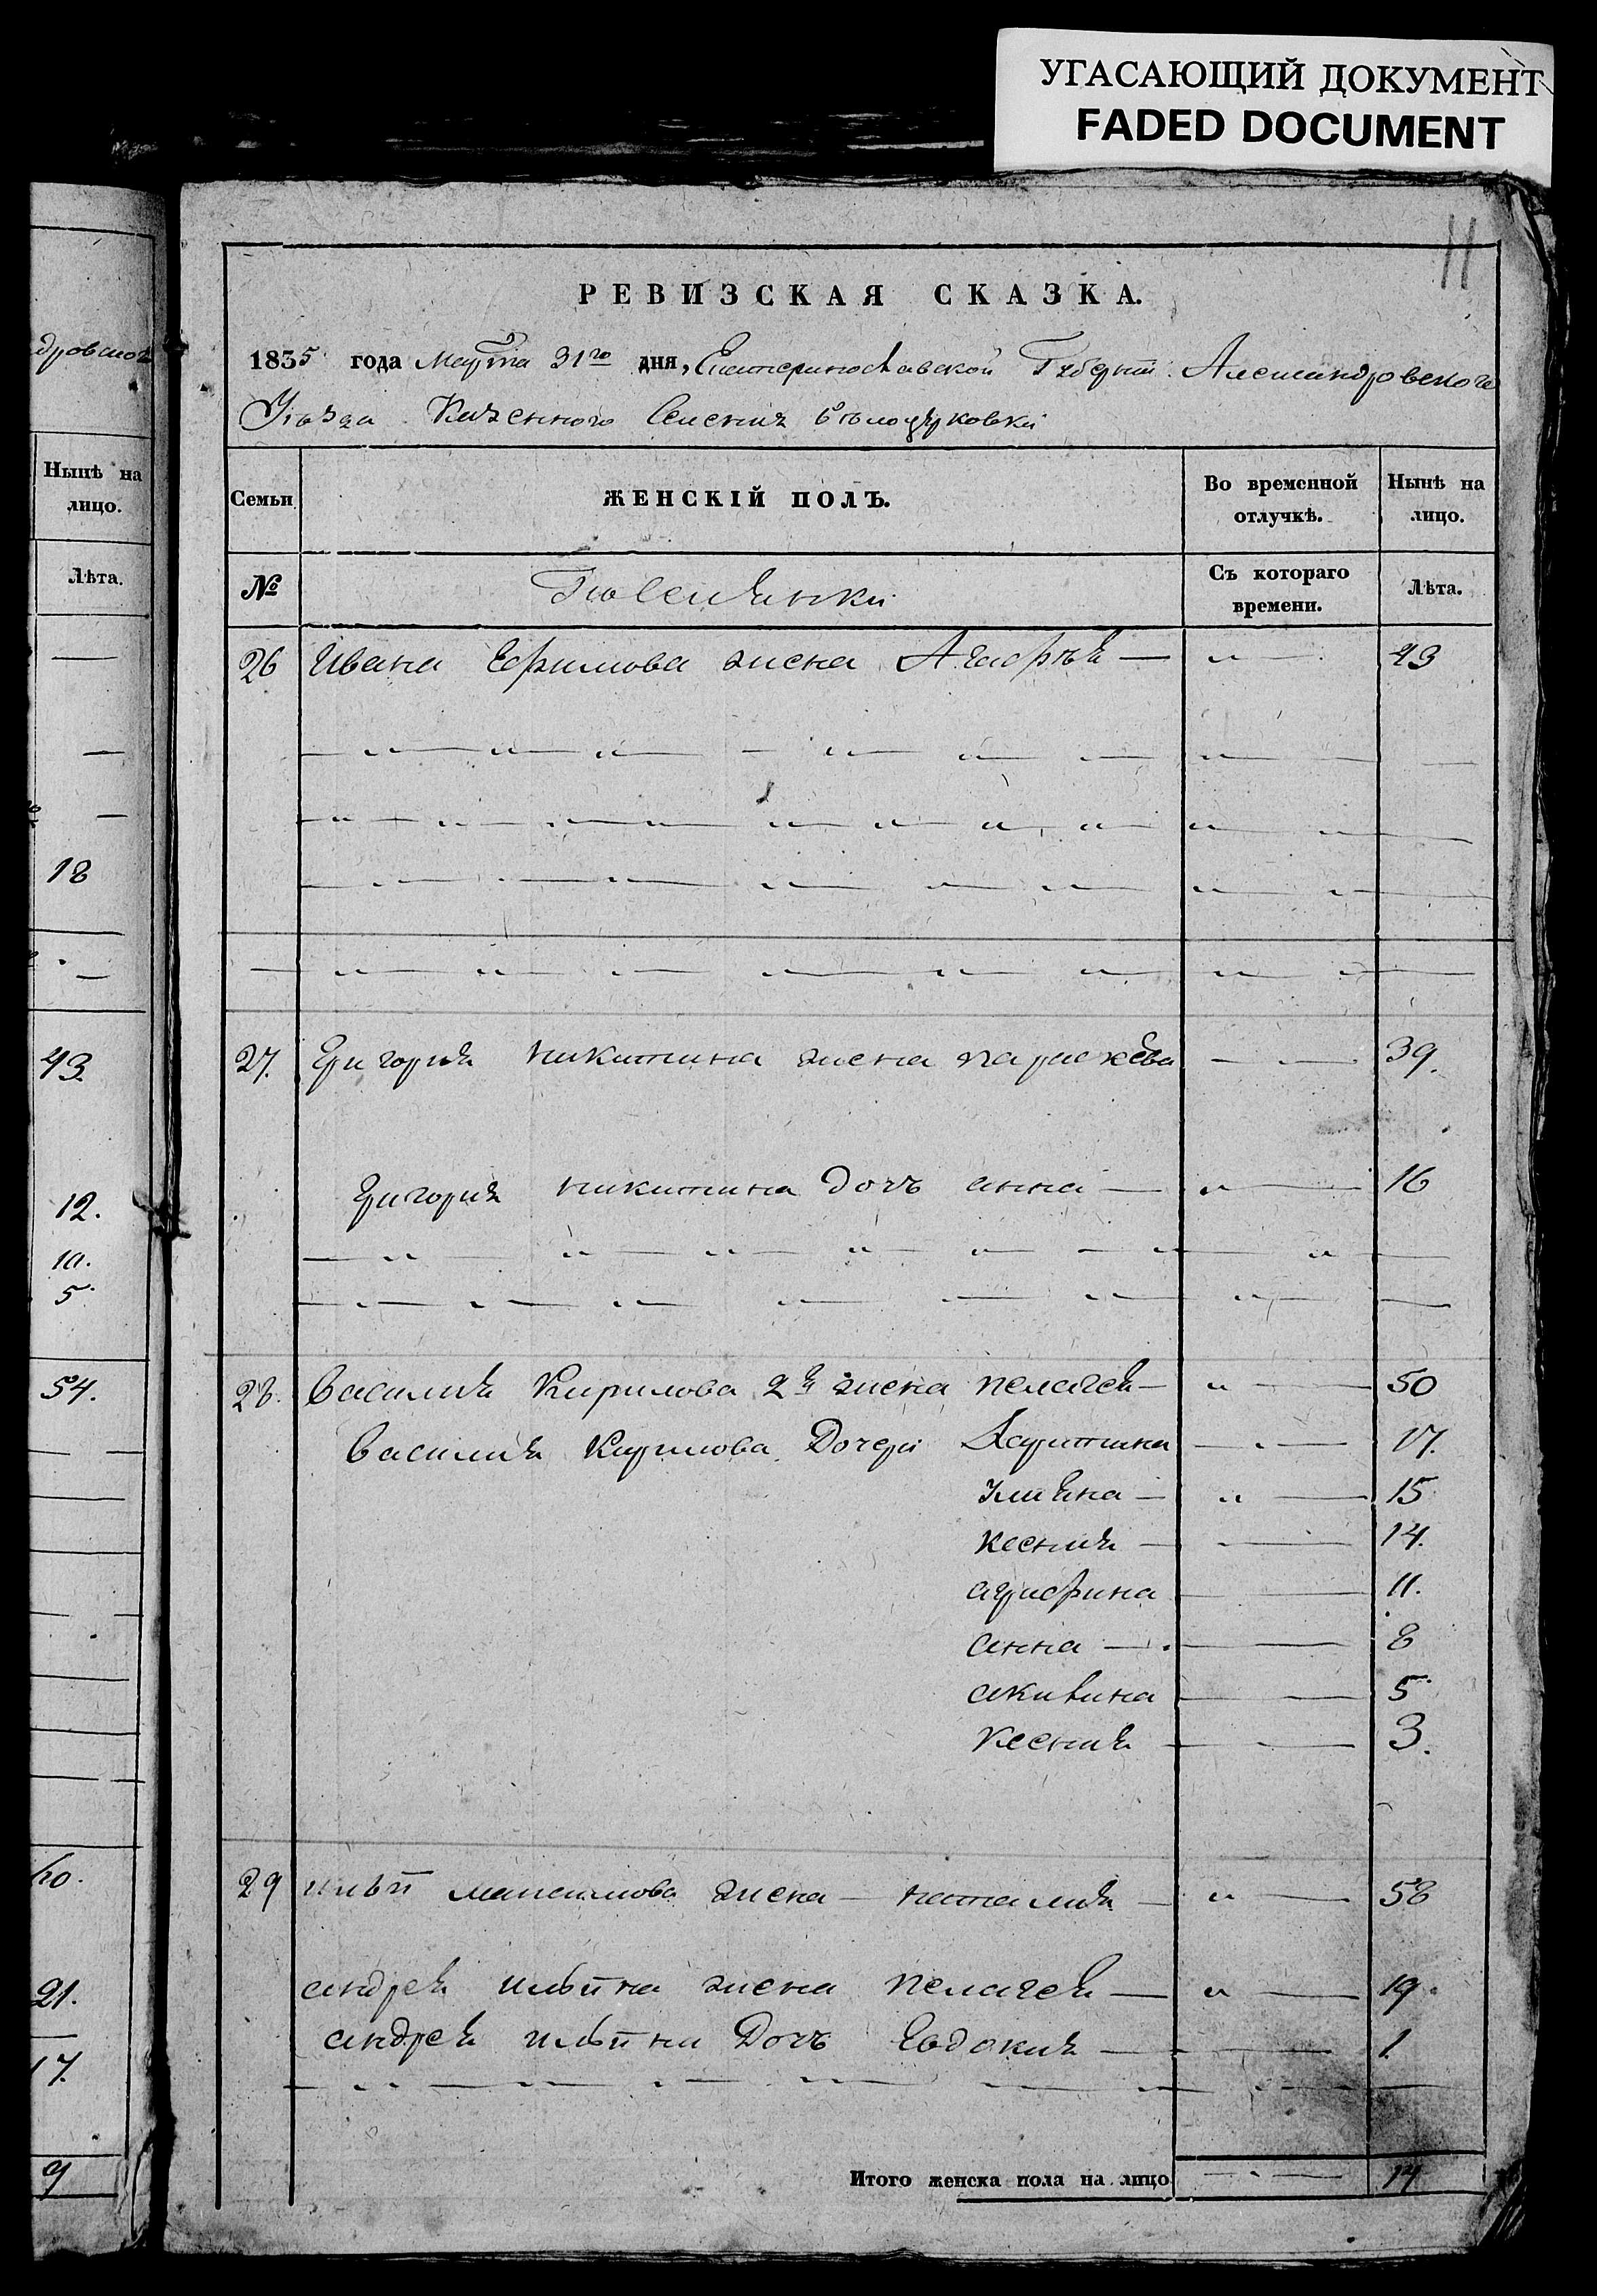 УГАСАЮЩИЙ ДОКУМЕНТ
FADED DOCUMENT
11
РЕВИЗСКАЯ СКАЗКА.
1835 года Марта 31го дня, Екатеринославской Губернии Александровского
Уезда Казенного Селения белоцерковки
Семьи ЖЕНСКІЙ ПОЛЪ. Во временной отлучкѣ. Нынѣ на лицо.
№ Поселянки Съ котораго времени. Лѣта.
26 Ивана Ефимова жена Агафья — 43
27. Григория никитина жена параскева 39.
Григория никитина дочь анна — 16
28. Василия Кирилова 2я жена пелагея — 50
Василия Кирилова Дочери Харитина 17.
улияна — 15
ксения — 14.
агрифина 11.
анна — 8
акилина 5
Ксения 3.
29 ильи максимова жена — наталия — 58
андрея ильина жена пелагея — 19.
андрея ильина Дочь Евдокия — 1.
Итого женска пола на лицо 14
дровского
Нынѣ на
лицо.
Лѣта.
18
43.
12.
10.
5
54.
21.
17.
9